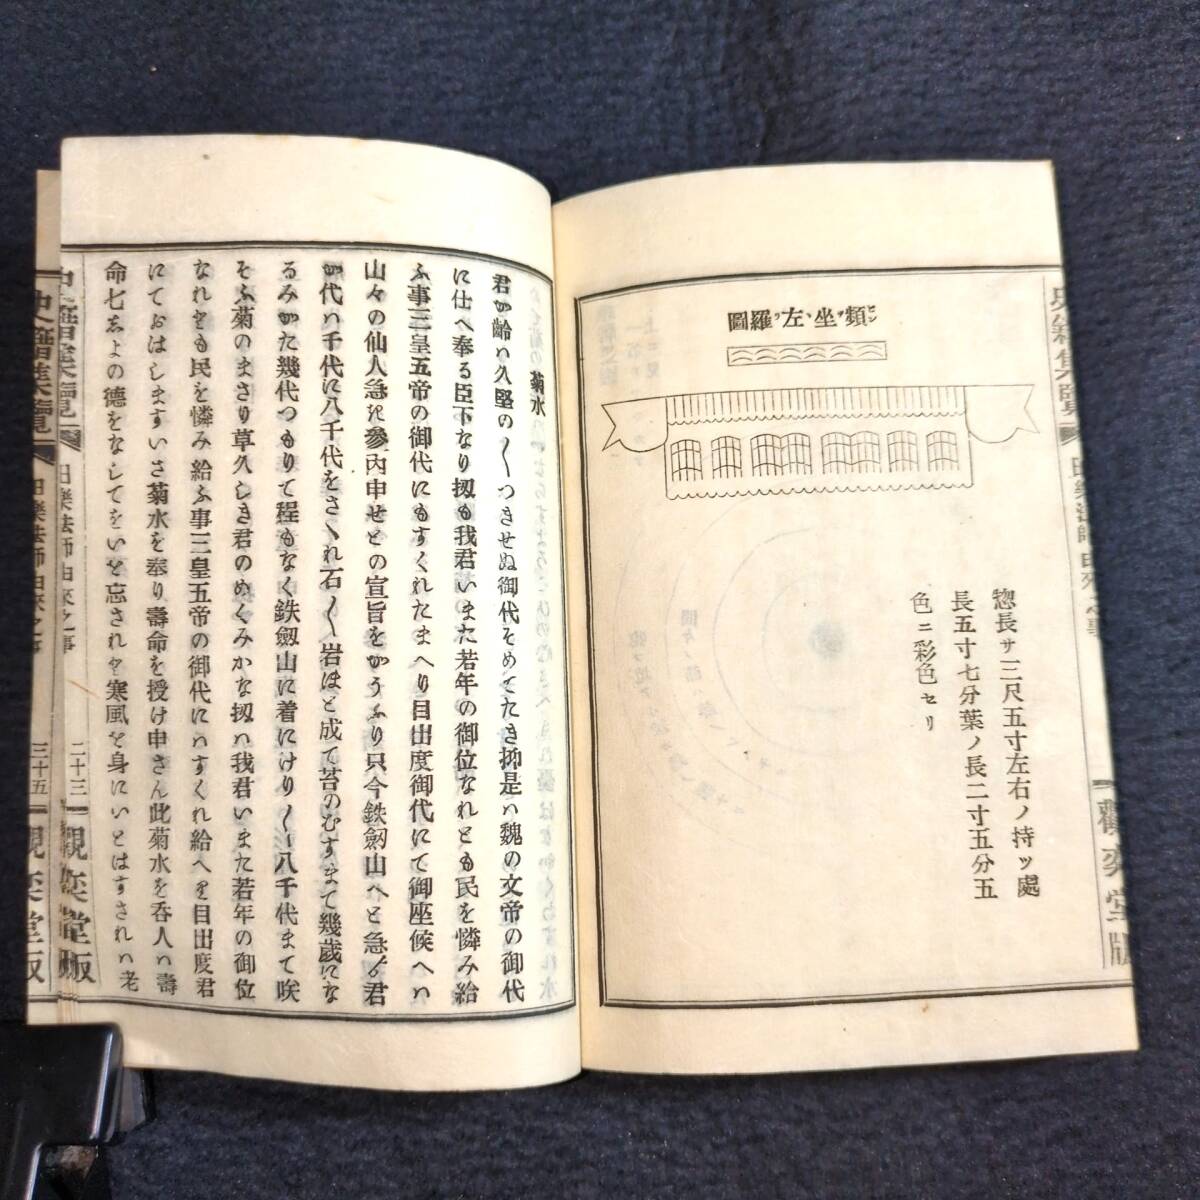 頻ヲ坐、左ヲ羅圖
惣長サ三尺五寸左右ノ持ツ處
長五寸七分葉ノ長二寸五分五
色ニ彩色セリ
觀奕堂版
菊水
君か齡ハ久堅の〱つきせぬ御代そめてたき抑是ハ魏の文帝の御代
に仕へ奉る臣下なり扨も我君いまた若年の御位なれとも民を憐み給
ふ事三皇五帝の御代にもすくれたまへり目出度御代にて御座候へハ
山々の仙人急き參内申せとの宣旨をかうふり只今鉄劔山へと急く君
か代ハ千代に八千代をさゝれ石〱岩ほと成て苔のむすまて幾歳にな
るみかた幾代つもりて程もなく鉄劔山に着にけり〱八千代まて咲
そふ菊のまさり草久しき君のめくみかな扨ハ我君いまた若年の御位
なれとも民を憐み給ふ事三皇五帝の御代にハすくれ給へを目出度君
にておはしますいさ菊水を奉り壽命を授け申さん此菊水を呑人ハ壽
命七
よの德をなしてをいを忘されを寒風を身にいとはすされハ老
史籍集覽
田樂法師由來之事
二十三
觀奕堂版
史籍集覽
田樂法師由來之事
三十五
觀奕堂版